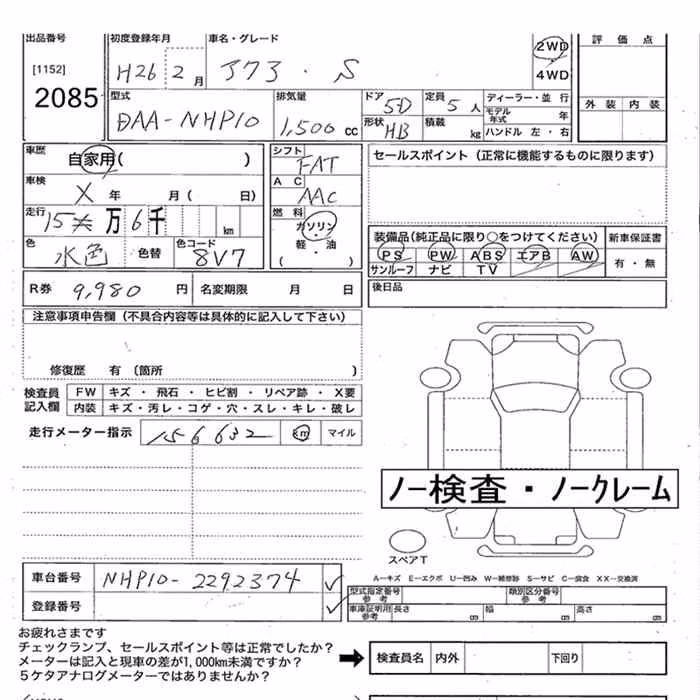 出品番号 初度登録年月 車名・グレード 2WD 評価点
[1152] H26 2月 アクア・S 4WD
2085 型式 排気量 ドア 5D 定員 5人 ディーラー・並行 外装 内装
DAA-NHP10 1,500cc 形状 HB 積載 kg モデル年式 年
ハンドル 左・右
車歴 自家用( ) シフト FAT セールスポイント(正常に機能するものに限ります)
車検 X 年 月( 日) AC AAC
走行 15万6千 km 燃料 ガソリン・軽・油( ) 装備品(純正品に限り○をつけてください) 新車保証書
色 水色 色替 色コード 8V7 PS PW ABS エアB AW 有・無
サンルーフ ナビ TV
R券 9,980円 名変期限 月 日 後日品
注意事項申告欄(不具合内容等は具体的に記入して下さい)
修復歴 有(箇所 )
検査員記入欄 FW キズ・飛石・ヒビ割・リペア跡・X要
内装 キズ・汚レ・コゲ・穴・スレ・キレ・破レ
走行メーター指示 156632 km マイル
ノー検査・ノークレーム
スペアT
A-キズ E-エクボ U-凹み W-補修跡 S-サビ C-腐食 XX-交換済
車台番号 NHP10-2292374 型式指定番号参考 類別区分番号参考
登録番号 車庫証明用参考 長さ cm 幅 cm 高さ cm
お疲れさまです
チェックランプ、セールスポイント等は正常でしたか?
メーターは記入と現車の差が1,000km未満ですか? 検査員名 内外 下回り
5ケタアナログメーターではありませんか?